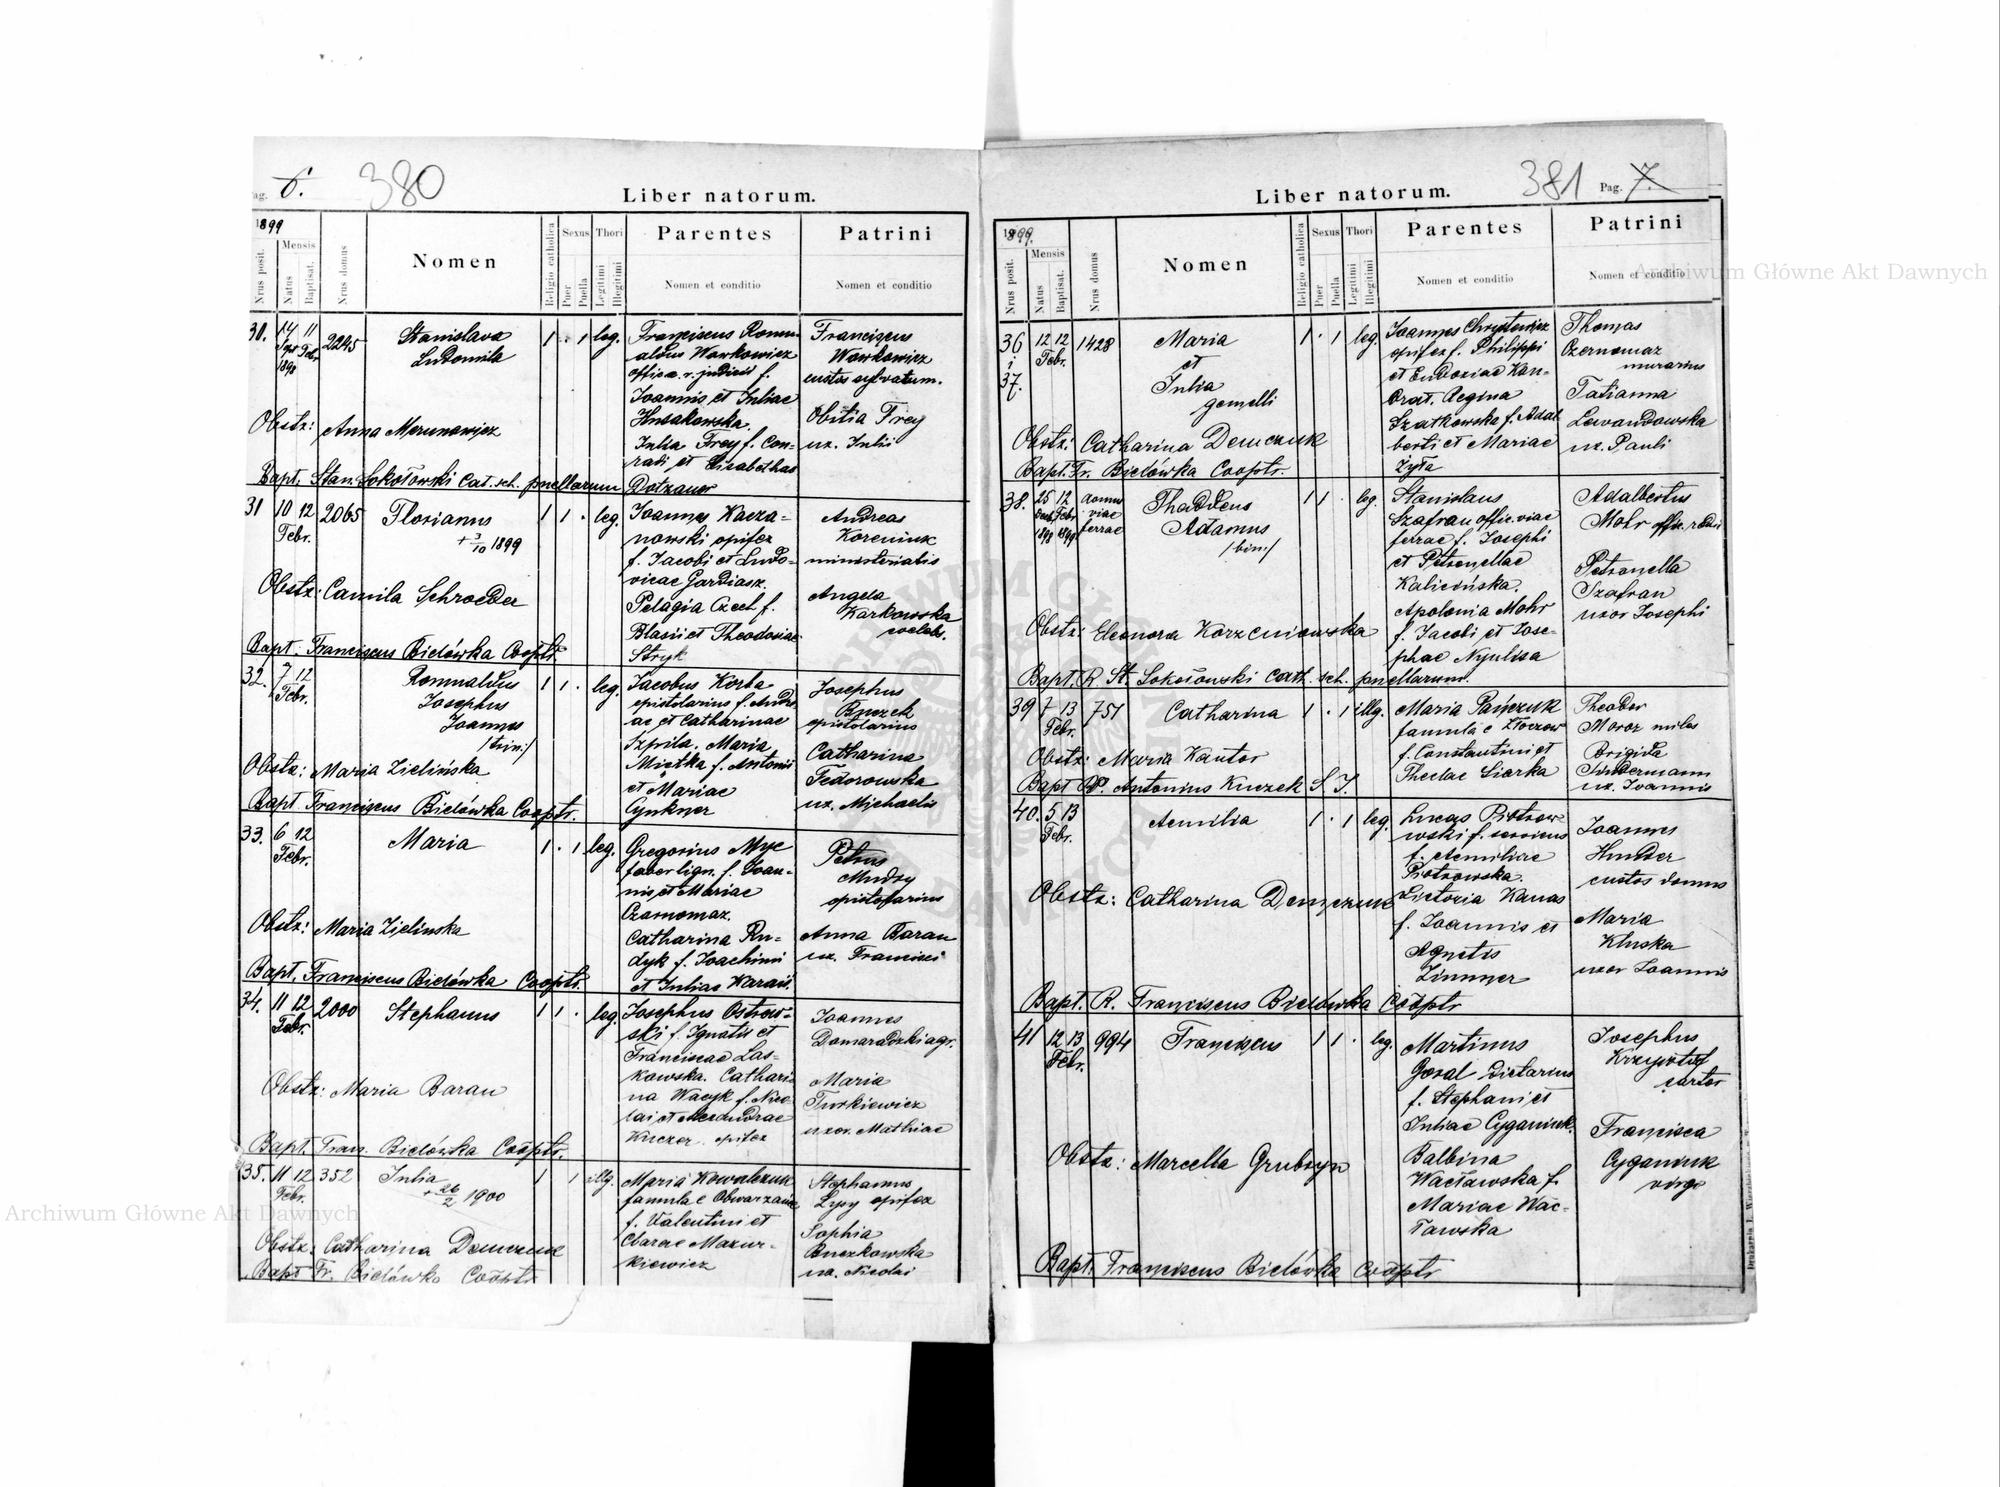 Pag. 6.
380
Liber natorum.
1899
Nrus posit.
Mensis
Natus
Baptisat.
Nrus domus
Nomen
Religio catholica
Sexus
Puer
Puella
Thori
Legitimi
Illegitimi
Parentes
Nomen et conditio
Patrini
Nomen et conditio
30. 14 11 2245 Stanislava 1 . 1 leg.
Sept. Febr. Ludomila
1898
Franciscus Romu
aldus Workowicz
Joannis et Juliae
Husakowska.
Julia Frey f. Con-
radi et Elisabethae
Dotzauer
Franciscus
Workowicz
custos sylvarum.
Obitia Frey
ux. Julii
Obstz: Anna Merunowicz
Bapt. Stan. Sokołowski Cat. sch. puellarum
31 10 12 2065 Florianus 1 1 . leg.
Febr. + 3/10 1899
Joannes Kacza-
nowski opifex
f. Jacobi et Ludo-
vicae Gardiasz.
Pelagia Czech f.
Blasii et Theodosiae
Stryk
Andreas
Koreniuk
ministerialis
Angela
Karkowska
coelebs.
Obstz: Camila Schroeder
Bapt. Franciscus Bielówka Cooptr.
32. 7 12 Romualdus 1 1 . leg.
Febr. Josephus
Joannes
/trin:/
Jacobus Korba
epistolarius f. Andre
ae et Catharinae
Szprila. Maria
Miotka f. Antonii
et Mariae
Cynkner
Josephus
Buczek
epistolarius
Catharina
Fedorowska
ux. Michaelis
Obstz: Maria Zielińska
Bapt. Franciscus Bielówka Cooptr.
33. 6 12 Maria 1 . 1 leg.
Febr.
Gregorius Myc
faber lign. f. Joan-
nis et Mariae
Czarnomaz.
Catharina Ru-
dyk f. Joachimi
et Juliae Karaś.
Petrus
Mudry
epistolarius
Anna Baran
ux. Francisci
Obstz: Maria Zielinska
Bapt. Franciscus Bielówka Cooptr.
34. 11 12 2000 Stephanus 1 1 . leg.
Febr.
Josephus Ostrow-
ski f. Ignatii et
Franciscae Las-
kowska. Cathari
na Wacyk f. Nico
lai et Alexandrae
Kuczer. opifex
Joannes
Domaradzki agr.
Maria
Turkiewicz
uxor. Mathiae
Obstz: Maria Baran
Bapt. Franc. Bielówka Cooptr.
35. 11 12 352 Julia 1 1 illg.
Febr. + 26/2 1900
Maria Kowalczuk
famula e Obwarzance
f. Valentini et
Clarae Mazur-
kiewicz
Stephanus
Lypy opifex
Sophia
Buczkowska
ux. Nicolai
Obstz: Catharina Demczuk
Bapt Fr. Bielówka Cooptr
Liber natorum.
381
Pag. 7.
1899.
Nrus posit.
Mensis
Natus
Baptisat.
Nrus domus
Nomen
Religio catholica
Sexus
Puer
Puella
Thori
Legitimi
Illegitimi
Parentes
Nomen et conditio
Patrini
Nomen et conditio
36 12 12 1428 Maria 1 . 1 leg.
i Febr. et
37. Julia
gemelli
Joannes Chrystowicz
opifex f. Philippi
et Eudoxiae Kon-
drat. Regina
Szatkowska f. Adal
berti et Mariae
Żyła
Thomas
Czernomaz
murarius
Tatianna
Lewandowska
ux. Pauli
Obstz: Catharina Demczuk
Bapt. Fr. Bielówka Cooptr.
38. 25 12 domus Thaddeus 1 1 . leg.
Febr. viae Adamus
1898 1899 ferrae /bin:/
Stanislaus
Szafran offic. viae
ferrae f. Josephi
et Petronellae
Kalicińska.
Apolonia Mohr
f. Jacobi et Jose-
phae Nyulisa
Adalbertus
Mohr
Petronella
Szafran
uxor Josephi
Obstz: Eleonora Korzeniowska
Bapt. R. St. Sokołowski Cath. sch. puellarum.
39 7 13 751 Catharina 1 . 1 illg.
Febr.
Maria Pańczuk
famula e Złoczow
f. Constantini et
Theclae Siorka
Theodor
Moroz miles
Brigida
Sindermann
ux. Joannis
Obstz: Maria Kantor
Bapt. P. Antonius Kuczek S. J.
40. 5 13 Aemilia 1 . 1 leg.
Febr.
Lucas Piotrow-
wski f.
f. Aemiliae
Piotrowska.
Victoria Kanas
f. Joannis et
Agnetis
Zimmer
Joannes
Hunder
custos domus
Maria
Kluska
uxor Joannis
Obstz: Catharina Demczuk
Bapt. R. Franciscus Bielówka Cooptr
41 12 13 994 Franciscus 1 1 . leg.
Febr.
Martinus
Goral Dietarius
f. Stephani et
Juliae Cyganiuk.
Balbina
Wacławska f.
Mariae Wac-
ławska
Josephus
Krzysztof
sartor
Francisca
Cyganiuk
virgo
Obstz: Marcella Grubzyn
Bapt. Franciscus Bielówka Cooptr
Archiwum Główne Akt Dawnych
Archiwum Główne Akt Dawnych